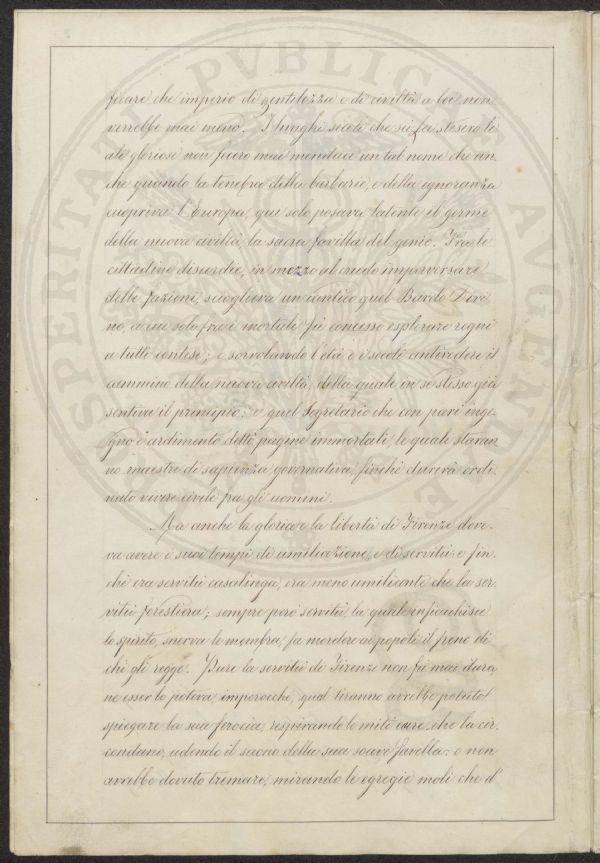 ficare che imperio di gentilezza e di civiltà a lei non
verrebbe mai meno. I lunghi secoli che su lei stesero le
ale gloriose non fecero mai mendace un tal nome che an-
che quando la tenebra della barbarie, e della ignoranza
cuopriva l'Europa, qui solo posava latente il germe
della nuova civiltà, la sacra favilla del genio. Fra le
cittadine discordie, in mezzo al crudo imperversare
delle fazioni, scioglieva un cantico quel Bardo Divi-
no, a cui solo fra i mortali fù concesso esplorare regni
a tutti contesi; e sorvolando l'età e i secoli antivedere il
cammino della nuova civiltà, della quale in se stesso già
sentiva il principio: e quel Segretario che con pari inge-
gno e ardimento dettò pagine immortali, le quali staran-
no maestre di sapienza governativa finchè durerà ordi-
nato vivere civile fra gli uomini.
Ma anche la gloria e la libertà di Firenze dove-
va avere i suoi tempi di umiliazione, e di servitù: e fin-
chè era servitù casalinga, era meno umiliante che la ser-
vitù forestiera; sempre però servitù, la quale infiacchisce
lo spirito, snerva le membra, fa mordere ai popoli il freno di
chi gli regge. Pure la servitù di Firenze non fù mai dura,
nè esser lo poteva, imperocchè, qual tiranno avrebbe potuto
spiegare la sua ferocia, respirando le miti aure, che la cir-
condano, udendo il suono della sua soave favella: o non
avrebbe dovuto tremare, mirando le egregie moli che d'
PROSPERITATI PVBLICAE AVGENDAE